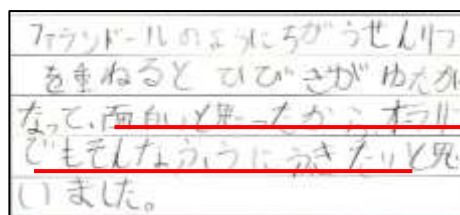 ファランドールのようにちがうせんりつ
を重ねると ひびきがゆたかに
なって、面白いと思ったから、オラリ
でもそんなふうにふきたいと思
いました。